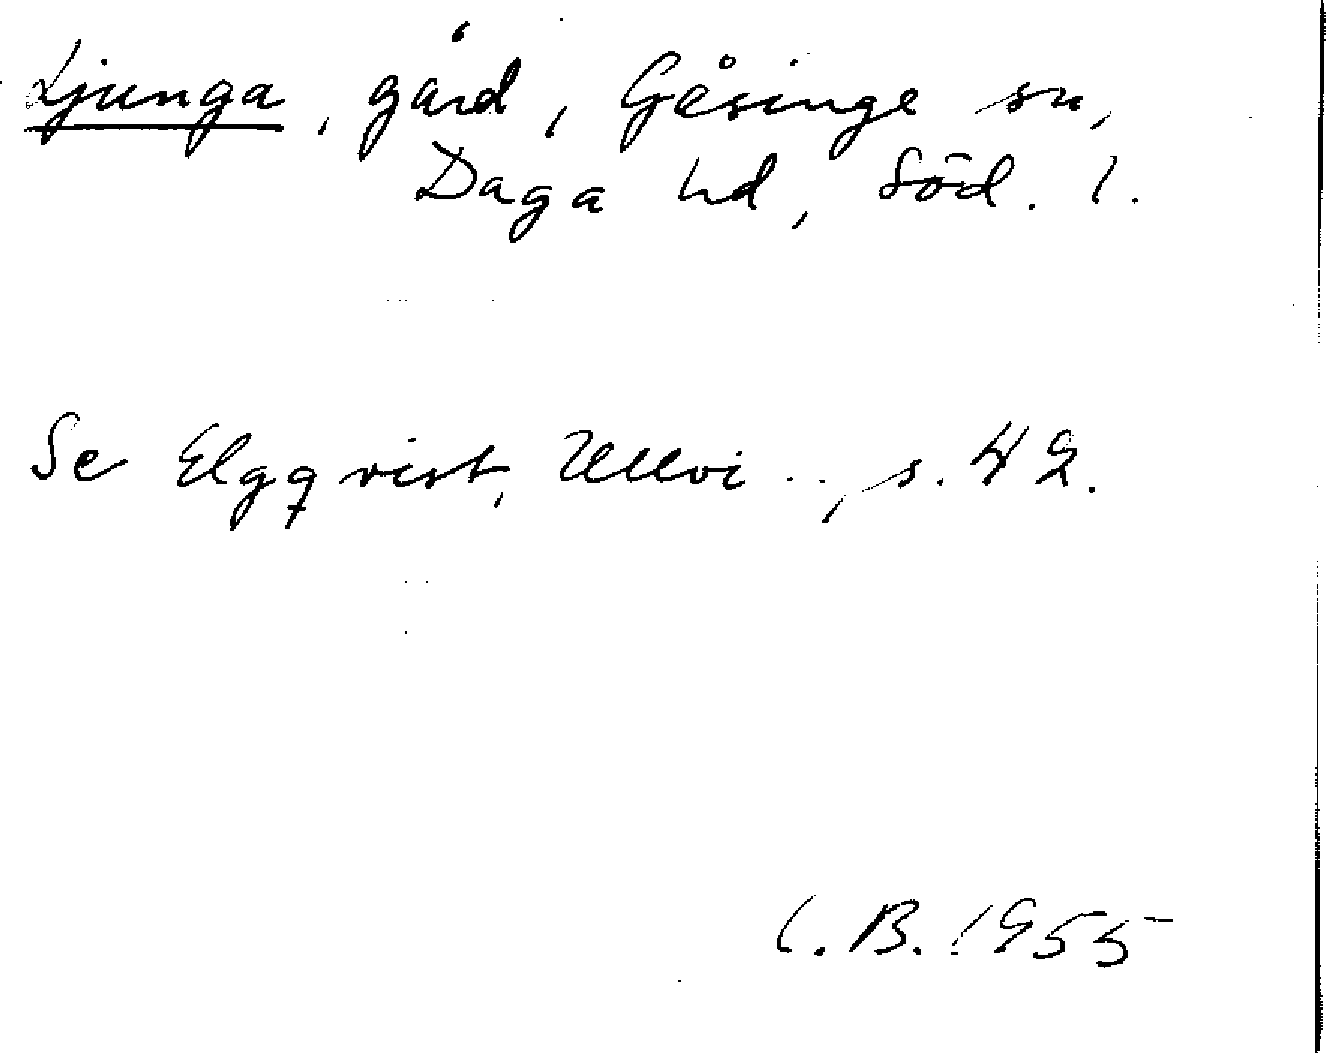 Ljunga, gård, Gåsinge sn,
Daga hd, Söd. l.
Se Elgqvist, Ullvi .., s. 42.
C. B. 1955